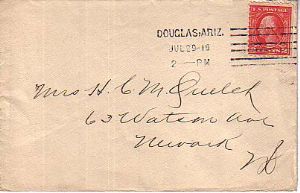 DOUGLAS, ARIZ.
JUL 29 - 16
2 — PM
U.S. POSTAGE
CENTS 2
Mrs H. C. M Quelch
63 Watson Ave
Newark
NJ